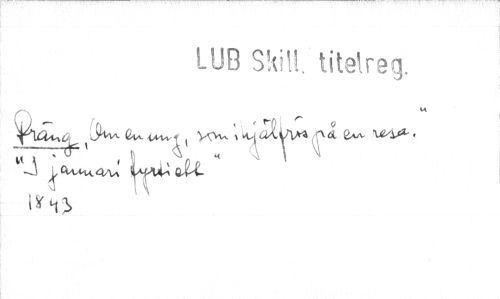 LUB Skill. titelreg.
Präng, Om en ung, som ihjälfrös på en resa."
"I januari fyrtiett"
1843